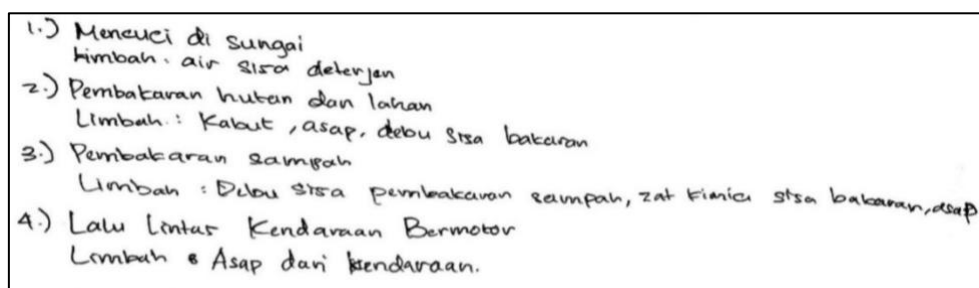 1.) Mencuci di sungai
Limbah. air sisa deterjen
2.) Pembakaran hutan dan lahan
Limbah : Kabut, asap, debu sisa bakaran
3.) Pembakaran sampah
Limbah : Debu sisa pembakaran sampah, zat kimia sisa bakaran, asap
4.) Lalu Lintas Kendaraan Bermotor
Limbah : Asap dari kendaraan.